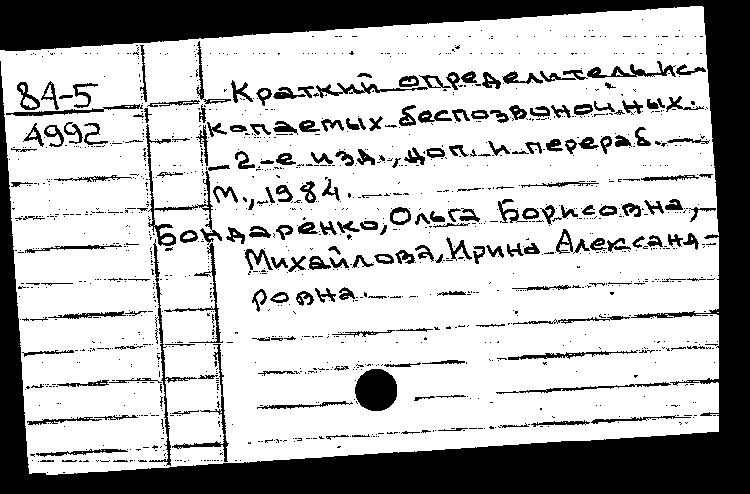 84-5
4992
Краткий определитель ис-
копаемых беспозвоночных.
— 2-е изд., доп. и перераб. —
М., 1984.
Бондаренко, Ольга Борисовна,
Михайлова, Ирина Александ-
ровна.